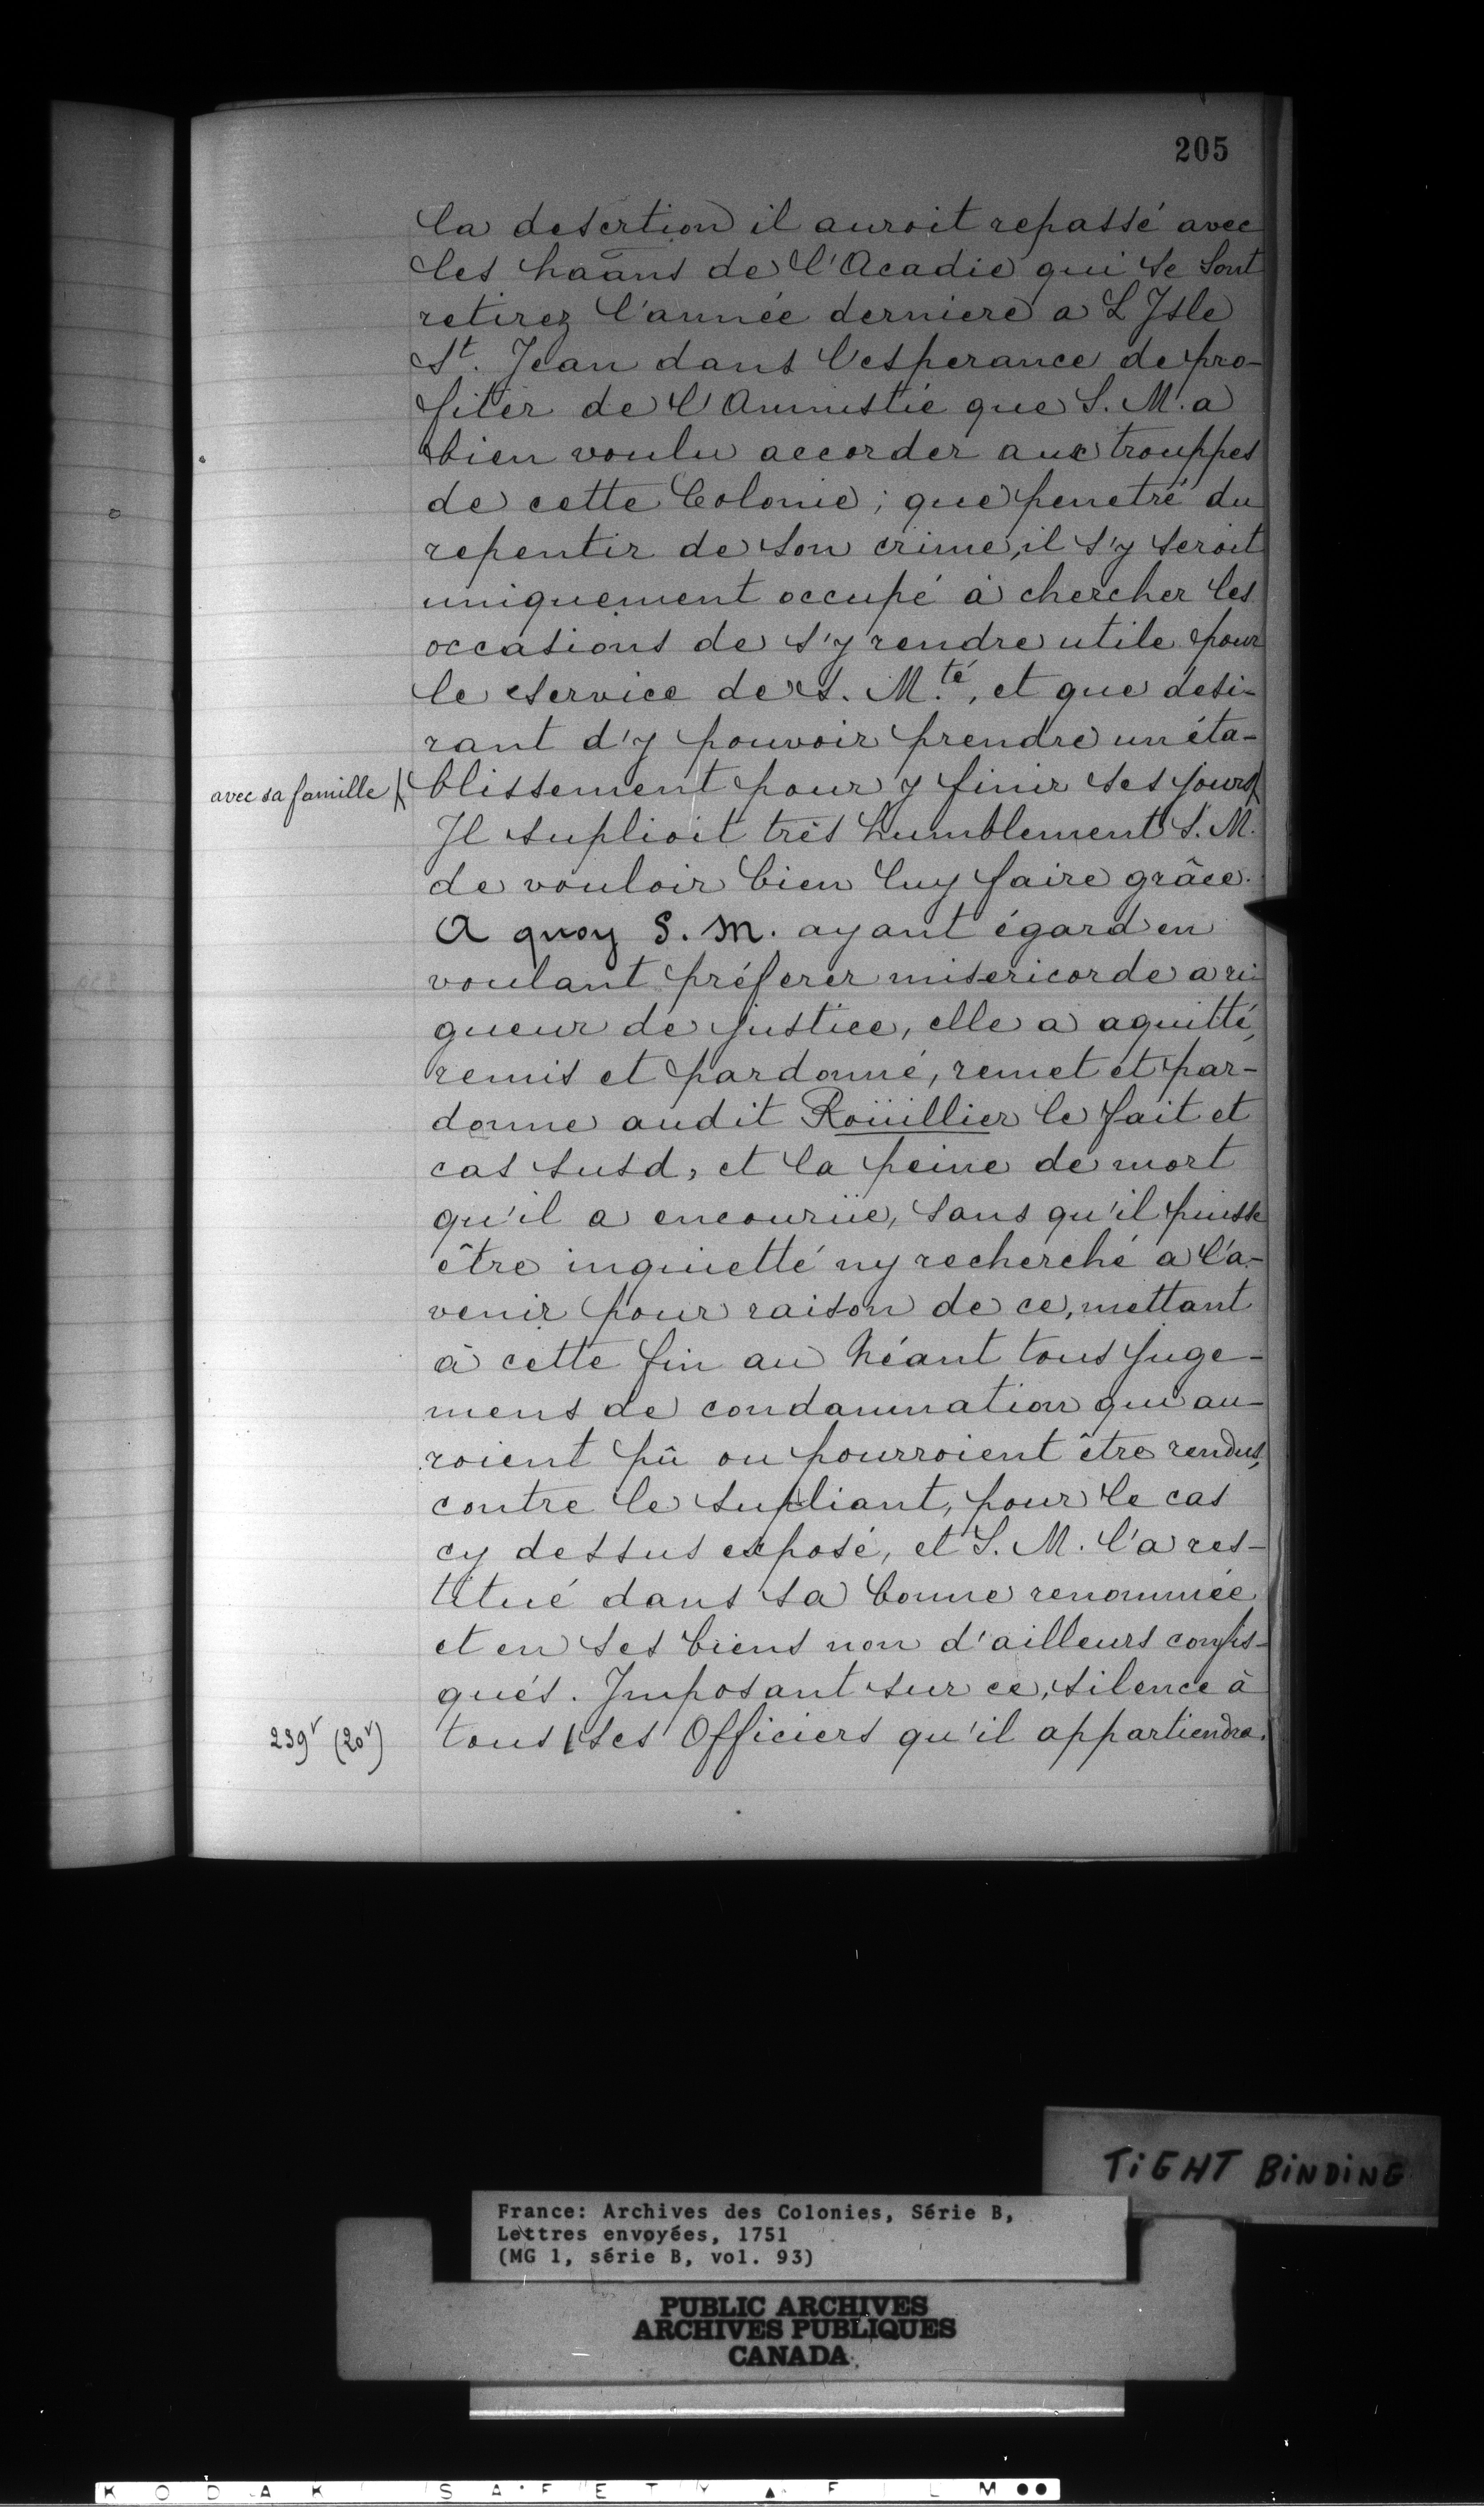 205
la desertion il auroit repassé avec
les haāns de l'Acadie qui se sont
retirez l'année derniere a L'Isle
St. Jean dans l'esperance de pro-
fiter de l'Amnistie que S. M. a
bien voulu accorder aux trouppes
de cette Colonie; que penetré du
repentir de son crime, il s'y seroit
uniquement occupé à chercher les
occasions de s'y rendre utile pour
le service de S. M.té, et que desi-
rant d'y pouvoir prendre un éta-
avec sa famille / blissement pour y finir ses jours /
Il suplioit très humblement S. M.
de vouloir bien luy faire grâce.
A quoy S. M. ayant égard en
voulant préferer misericorde a ri-
gueur de justice, elle a aquitté,
remis et pardonné, remet et par-
donne audit Roüillier le fait et
cas susd, et la peine de mort
qu'il a encourüe, sans qu'il puisse
être inquietté ny recherché a l'a-
venir pour raison de ce, mettant
à cette fin au Néant tous juge-
mens de condamnation qui au-
roient pû ou pourroient être rendus,
contre le supliant, pour le cas
cy dessus exposé, et S. M. l'a res-
titué dans sa bonne renommée
et en ses biens non d'ailleurs confis-
qués. Imposant sur ce, silence à
239v (20v) tous / ses Officiers qu'il appartiendra.
TIGHT BINDING
France: Archives des Colonies, Série B,
Lettres envoyées, 1751
(MG 1, série B, vol. 93)
PUBLIC ARCHIVES
ARCHIVES PUBLIQUES
CANADA
KODAK SAFETY FILM